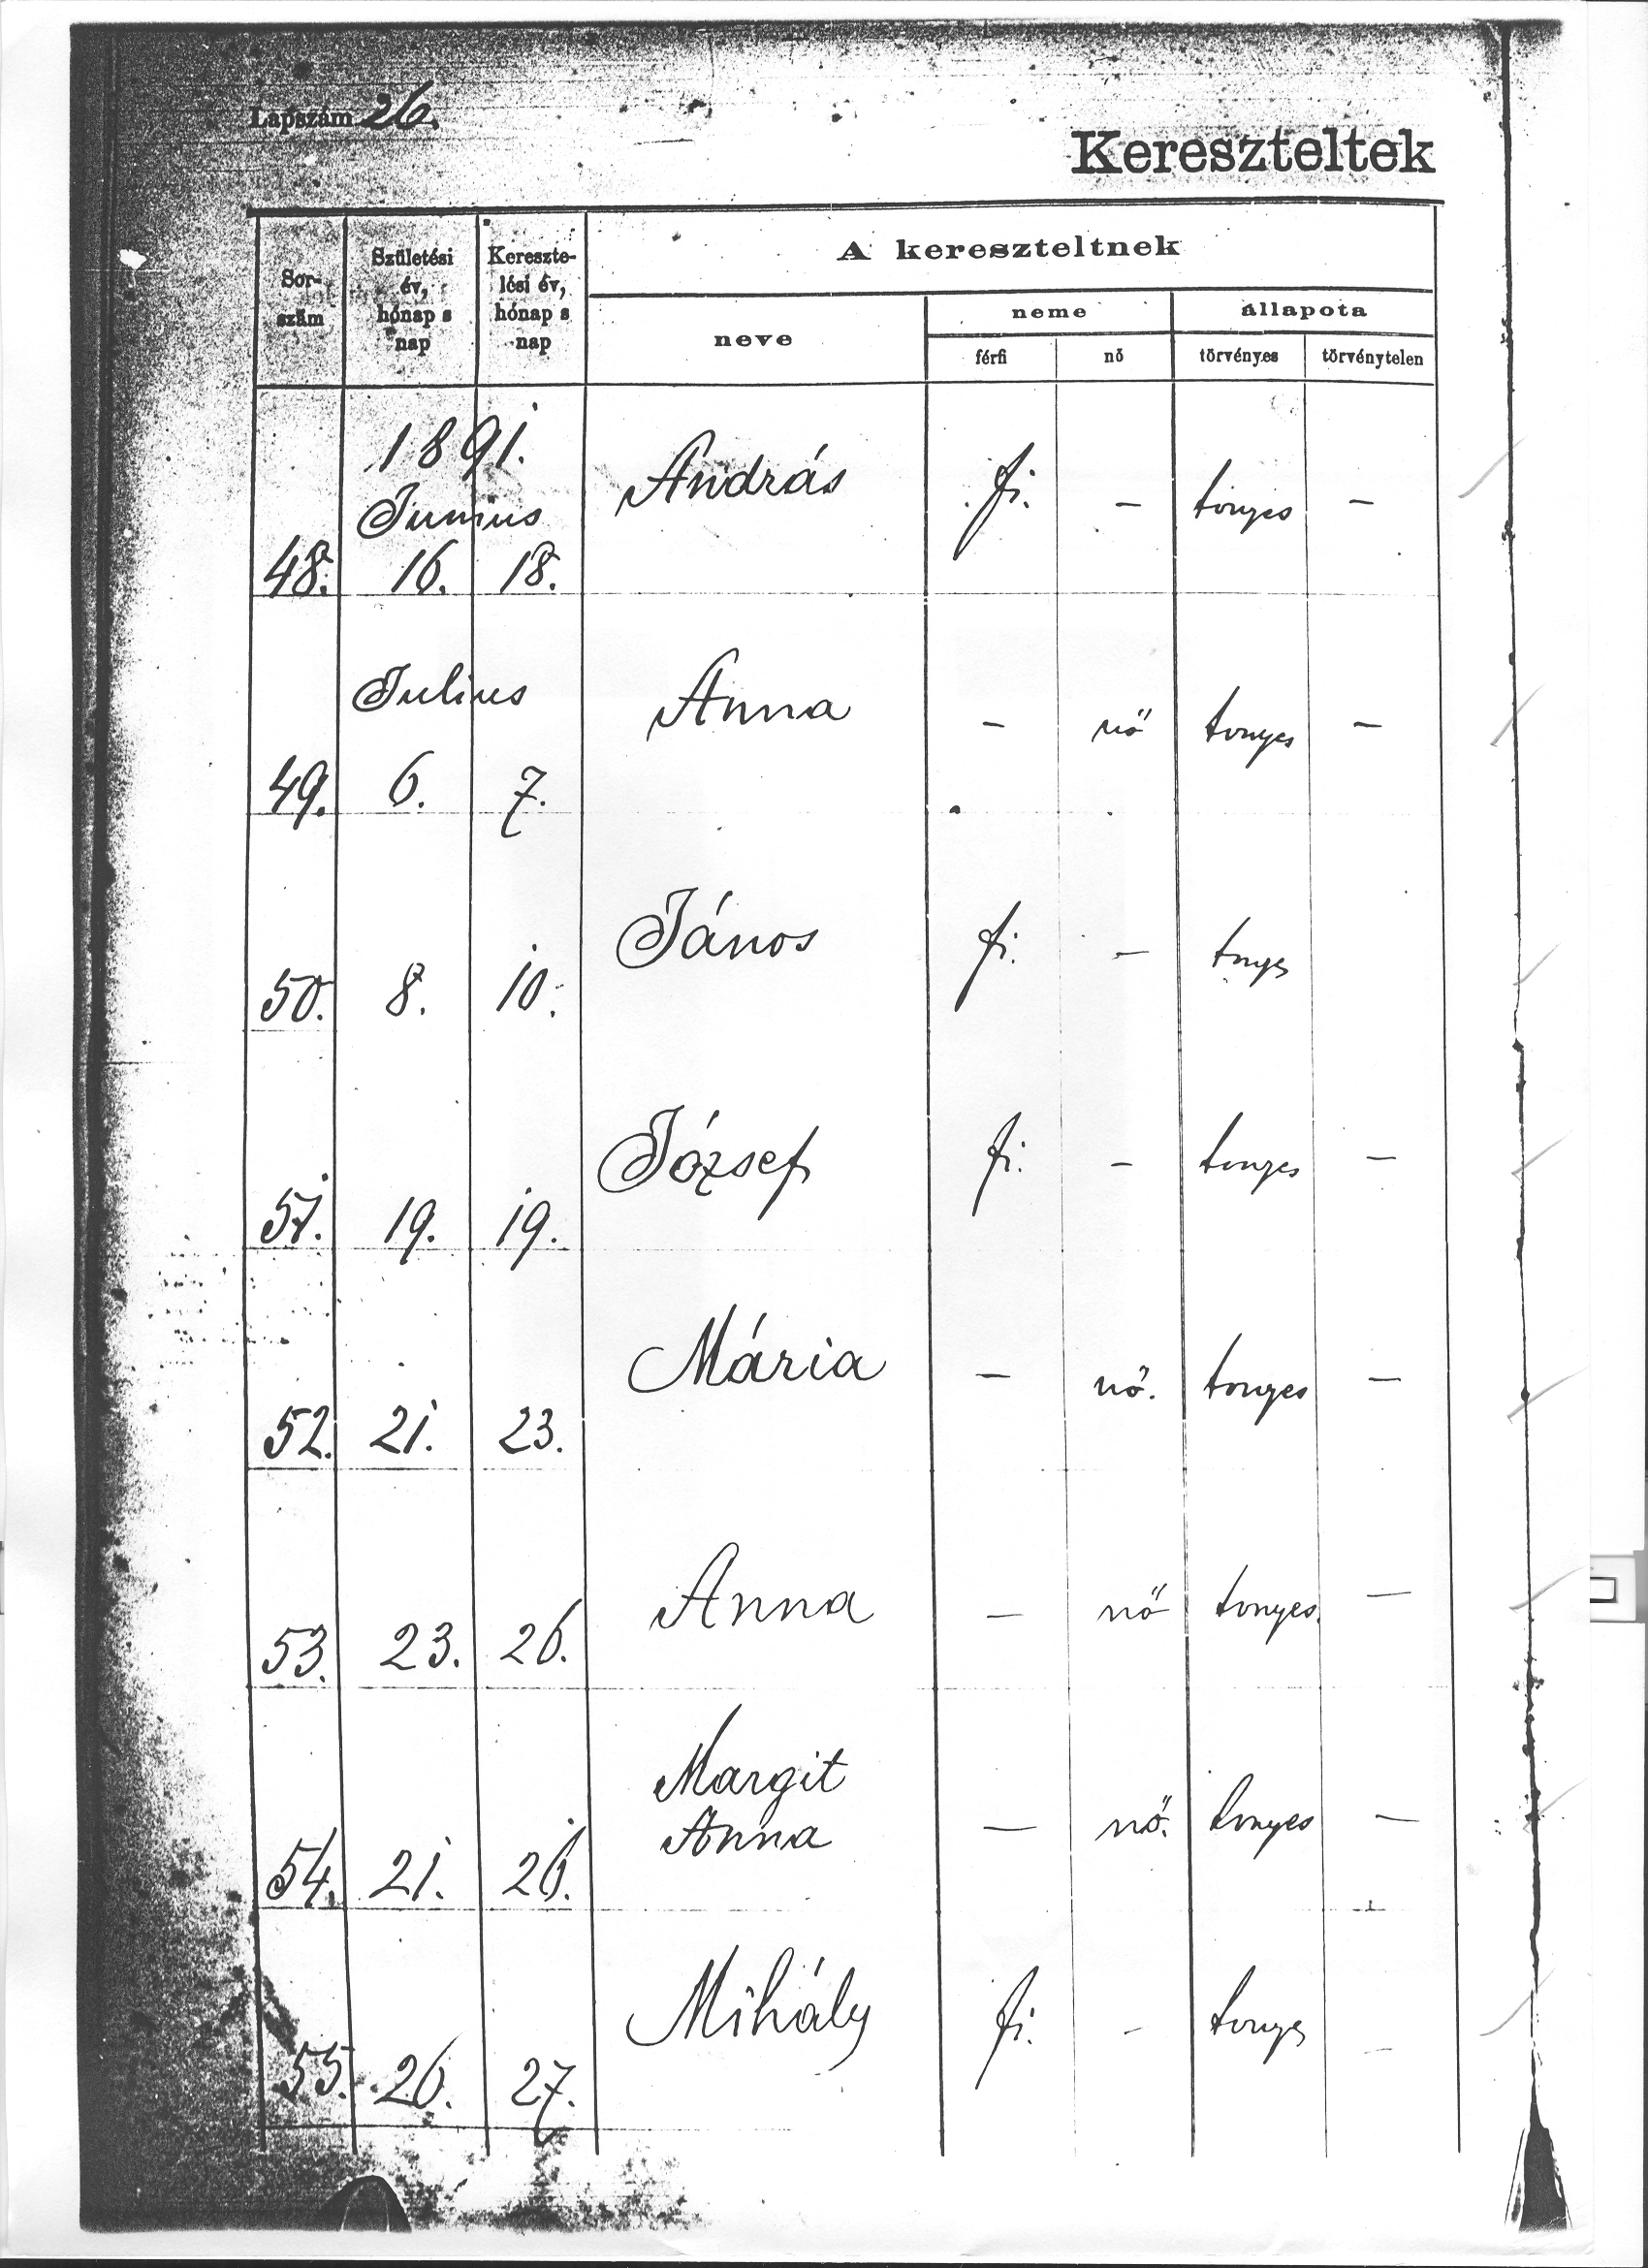 Lapszám 26.
Kereszteltek
Sor-
szám
Születési
év,
hónap s
nap
Kereszte-
lési év,
hónap s
nap
A kereszteltnek
neve
neme
állapota
férfi
nő
törvényes
törvénytelen
1891.
Junius
48. 16. 18. András fi. – tvnyes –
Julius
49. 6. 7. Anna – nő tvnyes –
50. 8. 10. János fi. – tnyes
51. 19. 19. József fi. – tvnyes –
52. 21. 23. Mária – nő. tvnyes –
53. 23. 26. Anna – nő tvnyes. –
54. 21. 26. Margit
Anna – nő. tvnyes –
55. 26. 27. Mihály fi. – tvnyes –